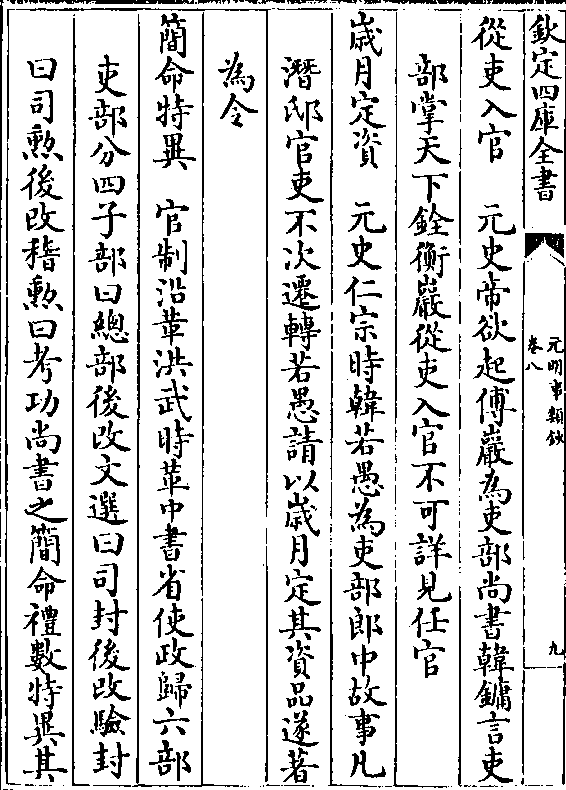 欽定四庫全書
元明事類鈔
卷八
九
從吏入官　元史帝欲起傅巖為吏部尚書韓鏞言吏
部掌天下銓衡巖從吏入官不可詳見任官
歲月定資　元史仁宗時韓若愚為吏部郎中故事凡
潛邸官吏不次遷轉若愚請以歲月定其資品遂著
為令
簡命特異　官制沿革洪武時革中書省使政歸六部
吏部分四子部曰總部後改文選曰司封後改驗封
曰司勲後改稽勲曰考功尚書之簡命禮數特異其